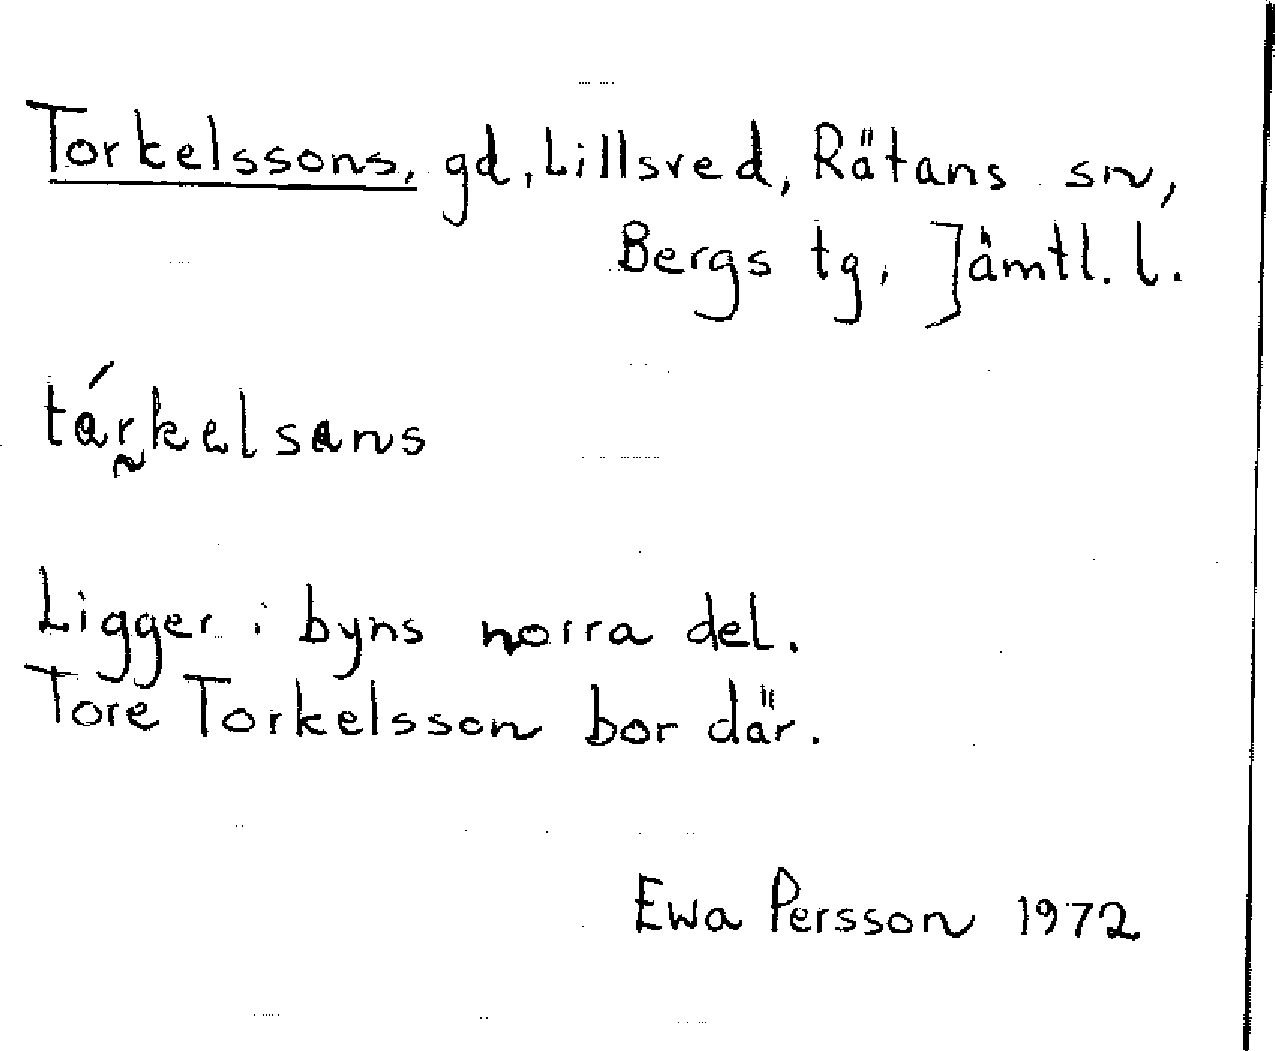 Torkelssons, gd, Lillsved, Rätans sn,
Bergs tg, Jämtl. l.
tárkelsans
Ligger i byns norra del.
Tore Torkelsson bor där.
Ewa Persson 1972